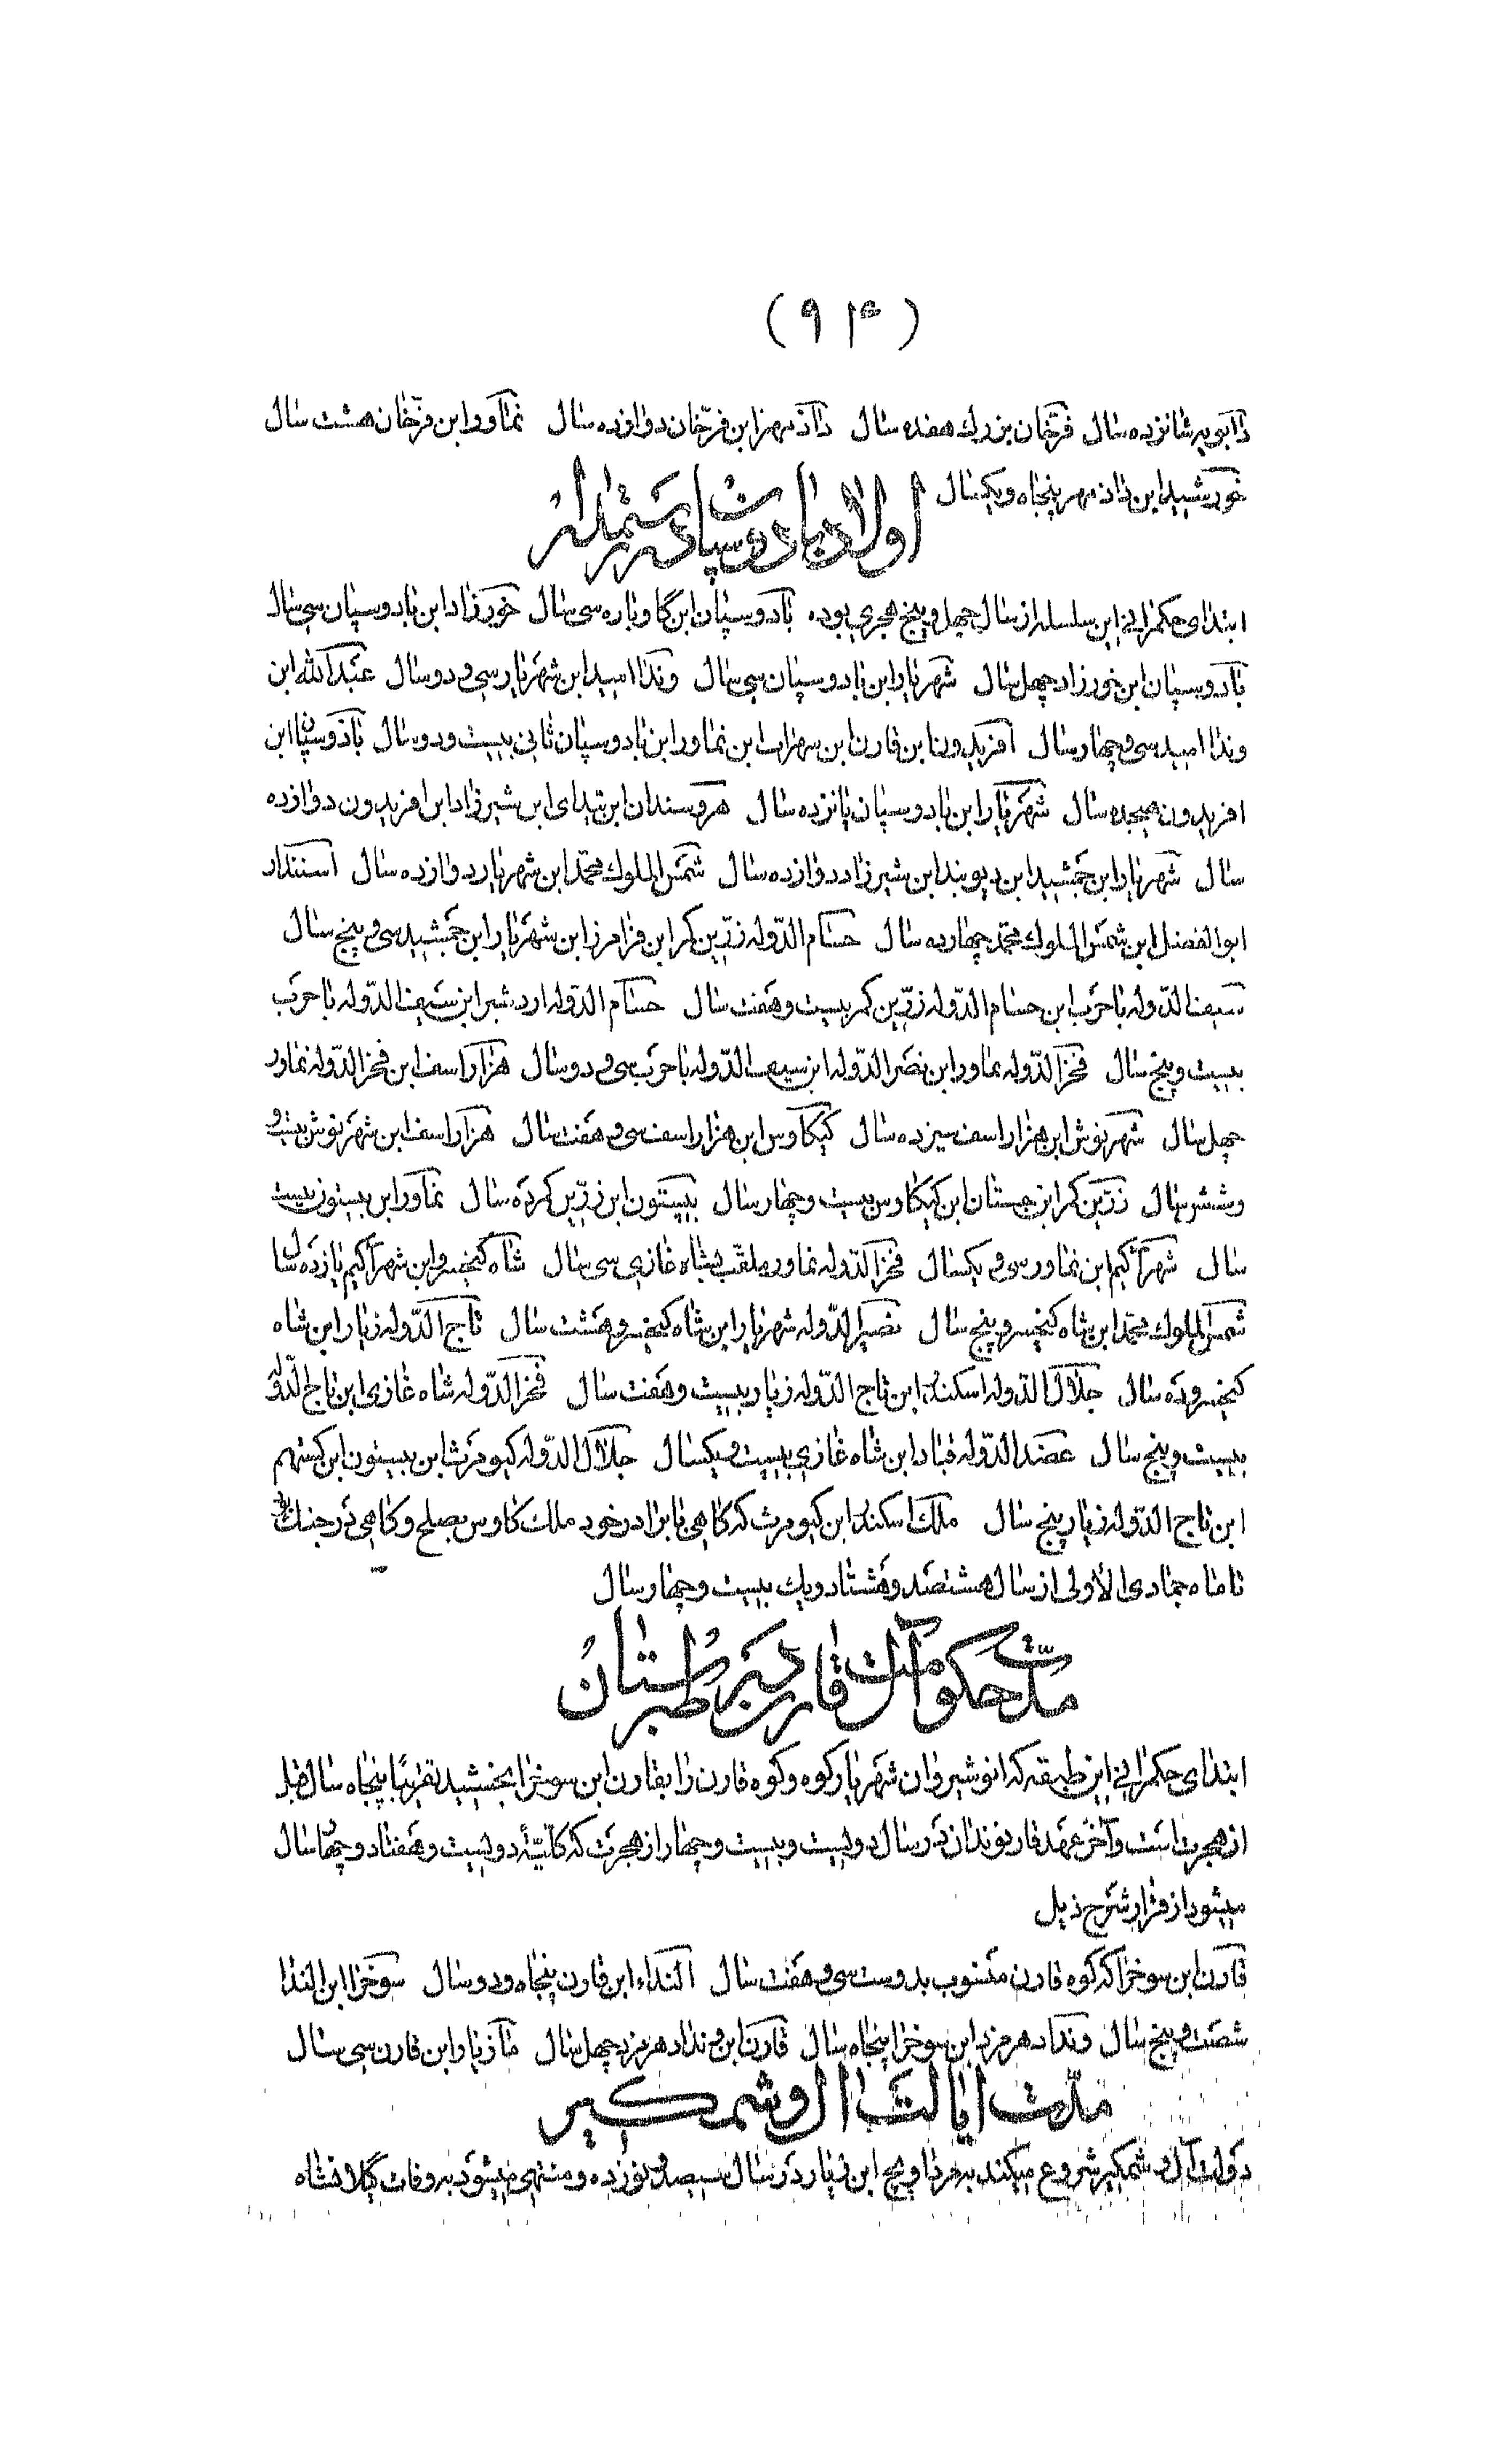 (۹۴)
دابویه شانزده سال فرّخان بزرك هفده سال داذمهر ابن فرّخان دوازده سال نماور ابن فرّخان هشت سال
خورشید ابن داذمهر پنجاه و یکسال
اولاد بادوسپان در رستمدار
ابتدای حکمرانی این سلسله از سال چهل و پنج هجری بوده بادوسپان ابن گاوباره سی سال خورزاد ابن بادوسپان سی سال
بادوسپان ابن خورزاد چهل سال شهریار ابن بادوسپان سی سال ونداامید ابن شهریار سی و دو سال عبدالله ابن
ونداامید سی و چهار سال آفریدون ابن قارن ابن سهراب ابن نماور ابن بادوسپان ثانی بیست و دو سال بادوسپان ابن
افریدون هیجده سال شهریار ابن بادوسپان پانزده سال هروسندان ابن تیدای ابن شیرزاد ابن افریدون دوازده
سال شهریار ابن جمشید ابن دیوبند ابن شیرزاد دوازده سال شمس الملوك محمّد ابن شهریار دوازده سال استندار
ابوالفضل ابن شمس الملوك محمّد چهارده سال حسام الدّوله زرّین کمر ابن فرامرز ابن شهریار ابن جمشید سی و پنج سال
سیف الدّوله باحرب ابن حسام الدّوله زرّین کمر بیست و هفت سال حسام الدّوله اردشیر ابن سیف الدّوله باحرب
بیست و پنج سال فخر الدّوله نماور ابن نصر الدّوله ابن سیف الدّوله باحرب سی و دو سال هزاراسف ابن فخر الدّوله نماور
چهل سال شهرنوش ابن هزاراسف سیزده سال کیکاوس ابن هزاراسف سی و هفت سال هزاراسف ابن شهرنوش بیست و
و شش سال زرّین کمر ابن جستان ابن کیکاوس بیست و چهار سال بیستون ابن زرّین کمر ده سال نماور ابن بیستون بیست
سال شهرآکیم ابن نماور سی و یکسال فخر الدّوله نماور ملقب بشاه غازی سی سال شاه کیخسرو ابن شهرآکیم یازده سال
شمس الملوك محمّد ابن شاه کیخسرو پنج سال نصیر الدّوله شهریار ابن شاه کیخسرو هشت سال تاج الدّوله زیار ابن شاه
کیخسرو ده سال جلال الدّوله اسکندر ابن تاج الدّوله زیار بیست و هفت سال فخر الدّوله شاه غازی ابن تاج الدّوله
بیست و پنج سال عضد الدّوله قباد ابن شاه غازی بیست و یکسال جلال الدّوله کیومرث ابن بیستون ابن کستهم
ابن تاج الدّوله زیار پنج سال ملك اسکندر ابن کیومرث که گاهی با برادر خود ملك کاوس بصلح و گاهی در جنك
تا ماه جمادی الاولی از سال هشتصد و هشتاد و یك بیست و چهار سال
مدّت حکومت آل قارن در طبرستان
ابتدای حکمرانی این طبقه که انوشیروان شهریارکوه و کوه قارن را بقارن ابن سوخرا بخشید تقریبًا پنجاه سال قبل
از هجرت است و آخر عهد قارنوندان در سال دویست و بیست و چهار از هجرت که کلّیّةً دویست و هفتاد و چهار سال
میشود از قرار شرح ذیل
قارن ابن سوخرا که کوه قارن منسوب بدوست سی و هفت سال الندا ابن قارن پنجاه و دو سال سوخرا ابن الندا
شصت و پنج سال ونداد هرمزد ابن سوخرا پنجاه سال قارن ابن ونداد هرمزد چهل سال مازیار ابن قارن سی سال
مدّت ایالت آل وشمکیر
دولت آل وشمکیر شروع میکند به مرداویج ابن زیار در سال سیصد و نوزده و منتهی میشود به وفات گیلانشاه